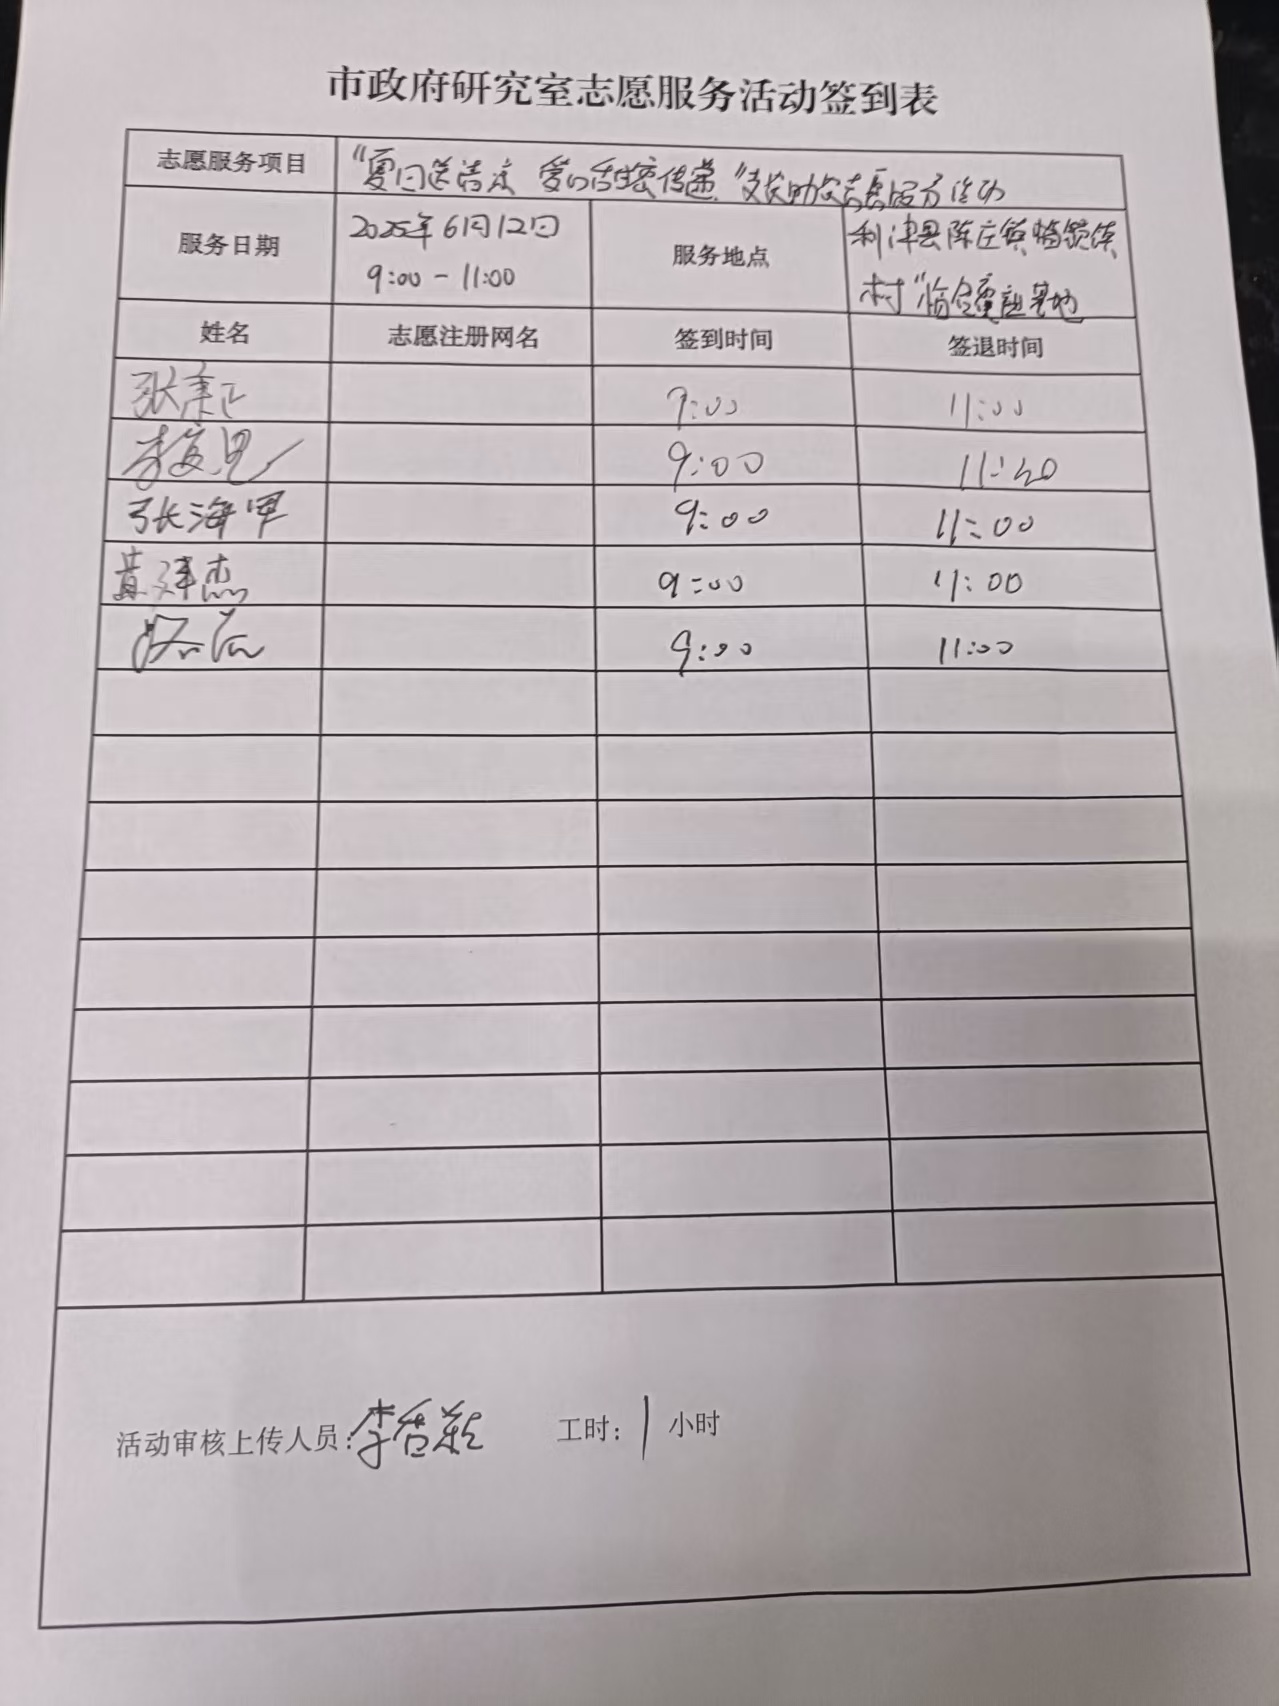 市政府研究室志愿服务活动签到表
志愿服务项目 "夏日送清凉 爱心甜蜜传递"志愿服务活动
服务日期 2025年6月12日 9:00-11:00 服务地点 利津县陈庄镇 村 基地
姓名 志愿注册网名 签到时间 签退时间
9:00 11:00
9:00 11:00
张海军 9:00 11:00
黄 杰 9:00 11:00
9:00 11:00
活动审核上传人员: 李 工时: 1 小时